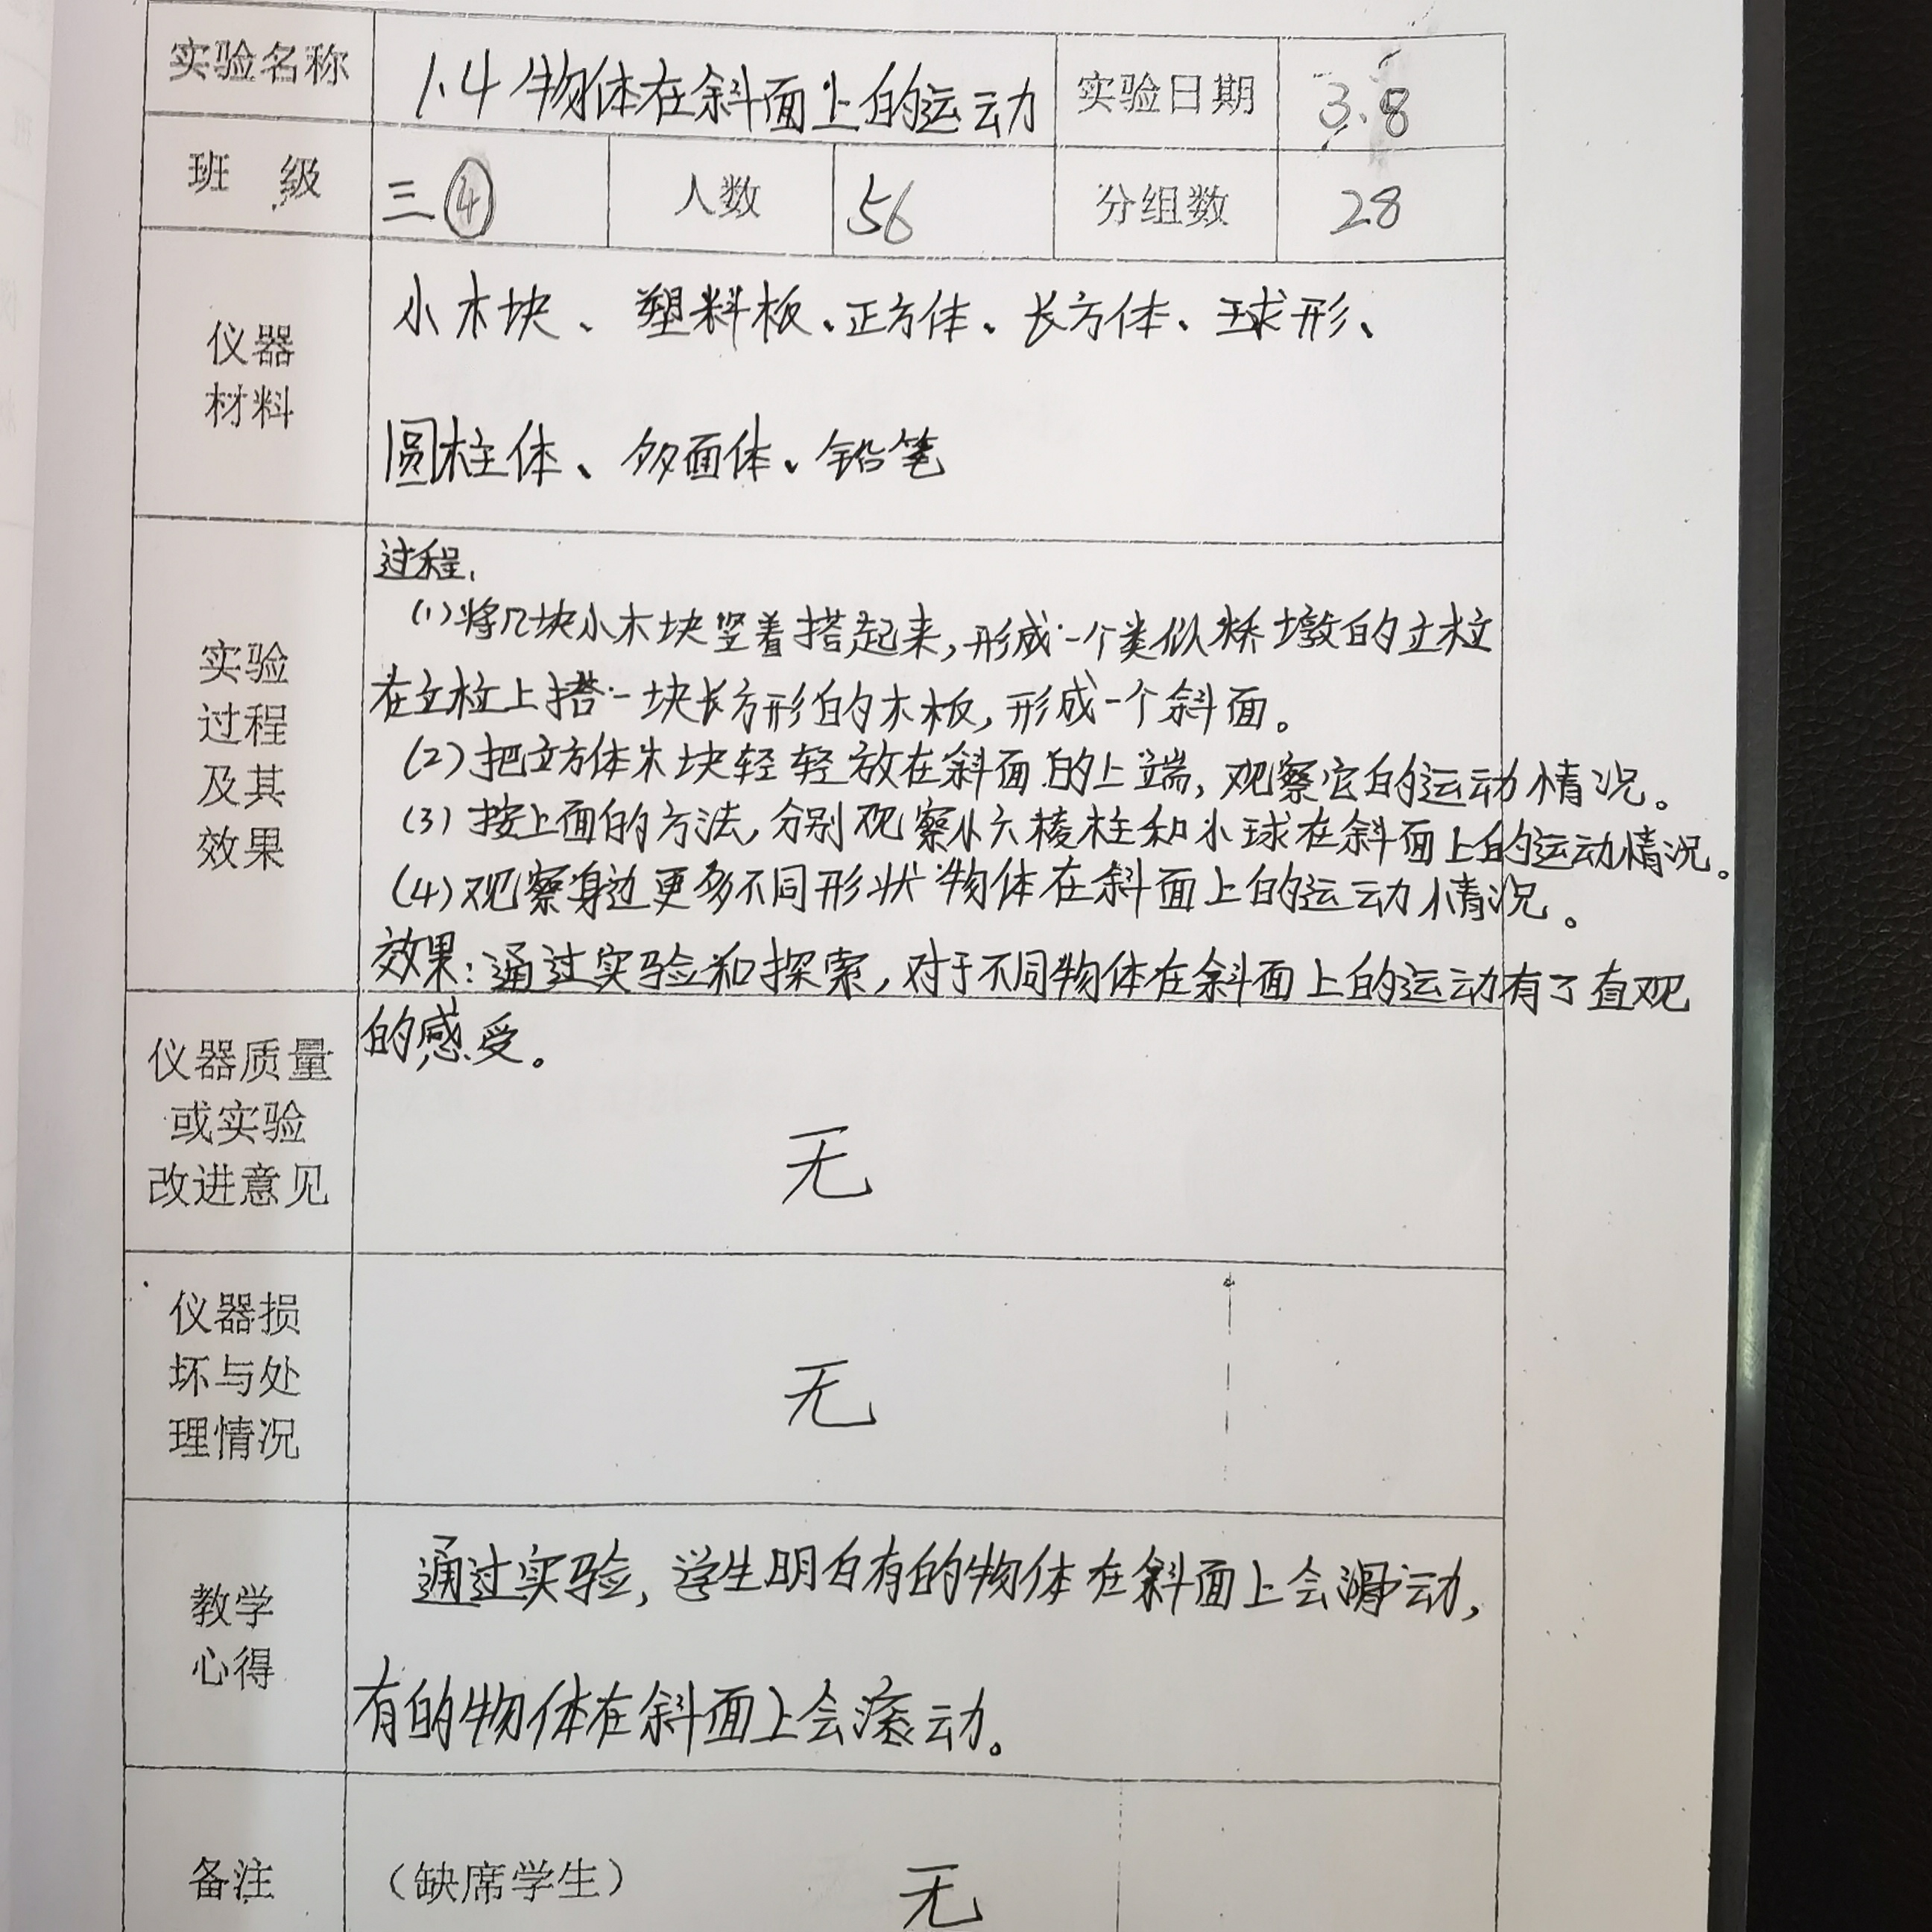 实验名称 1.4 物体在斜面上的运动 实验日期 3.8
班 级 三④ 人数 56 分组数 28
仪器
材料
小木块、塑料板、正方体、长方体、球形、
圆柱体、多面体、铅笔
实验
过程
及其
效果
过程:
(1)将几块小木块竖着搭起来,形成一个类似桥墩的立柱
在立柱上搭一块长方形的木板,形成一个斜面。
(2)把立方体木块轻轻放在斜面的上端,观察它的运动情况。
(3)按上面的方法,分别观察小六棱柱和小球在斜面上的运动情况。
(4)观察身边更多不同形状物体在斜面上的运动情况。
效果:通过实验和探索,对于不同物体在斜面上的运动有了直观
的感受。
仪器质量
或实验
改进意见
无
仪器损
坏与处
理情况
无
教学
心得
通过实验,学生明白有的物体在斜面上会滑动,
有的物体在斜面上会滚动。
备注 (缺席学生) 无